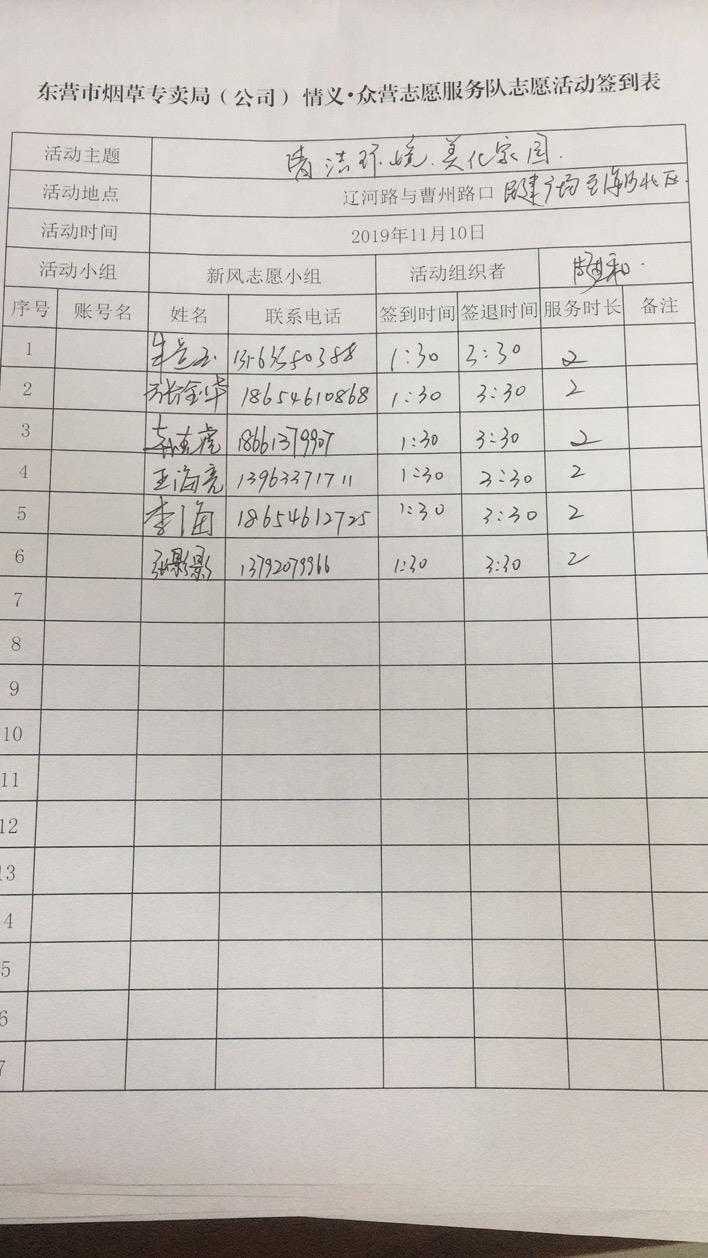 东营市烟草专卖局（公司）情义·众营志愿服务队志愿活动签到表
活动主题 清洁环境.美化家园.
活动地点 辽河路与曹州路口
活动时间 2019年11月10日
活动小组 新风志愿小组 活动组织者
序号 账号名 姓名 联系电话 签到时间 签退时间 服务时长 备注
1 1:30 3:30 2
2 张金华 18654610868 1:30 3:30 2
3 18661379907 1:30 3:30 2
4 王海亮 13963371711 1:30 3:30 2
5 李海 18654612725 1:30 3:30 2
6 张影影 13792079966 1:30 3:30 2
7
8
9
10
11
12
13
4
5
6
7